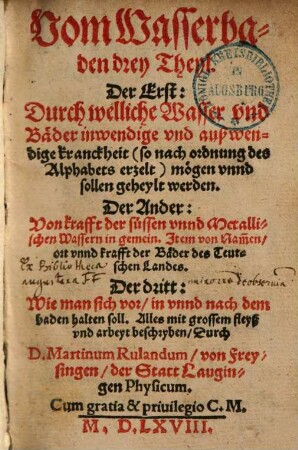 Vom Wasserba-
den drey Theyl.
Der Erst:
Durch welliche Wasser vnd
Bäder inwendige vnd außwen-
dige kranckheit (so nach ordnung des
Alphabets erzelt) mögen vnnd
sollen geheylt werden.
Der Ander:
Von krafft der süssen vnnd Metalli-
schen Wassern in gemein. Item von Nam̃en/
ort vnnd krafft der Bäder des Teut-
schen Landes.
Der dritt:
Wie man sich vor/ in vnnd nach dem
baden halten soll. Alles mit grossem fleyß
vnd arbeyt beschryben/ Durch
D. Martinum Rulandum/ von Frey-
singen/ der Statt Laugin-
gen Physicum.
Cum gratia & priuilegio C. M.
M. D. LXVIII.
KÖNIGL. KREISBIBLIOTHEK
IN
AUGSBURG
Ex Bibliotheca